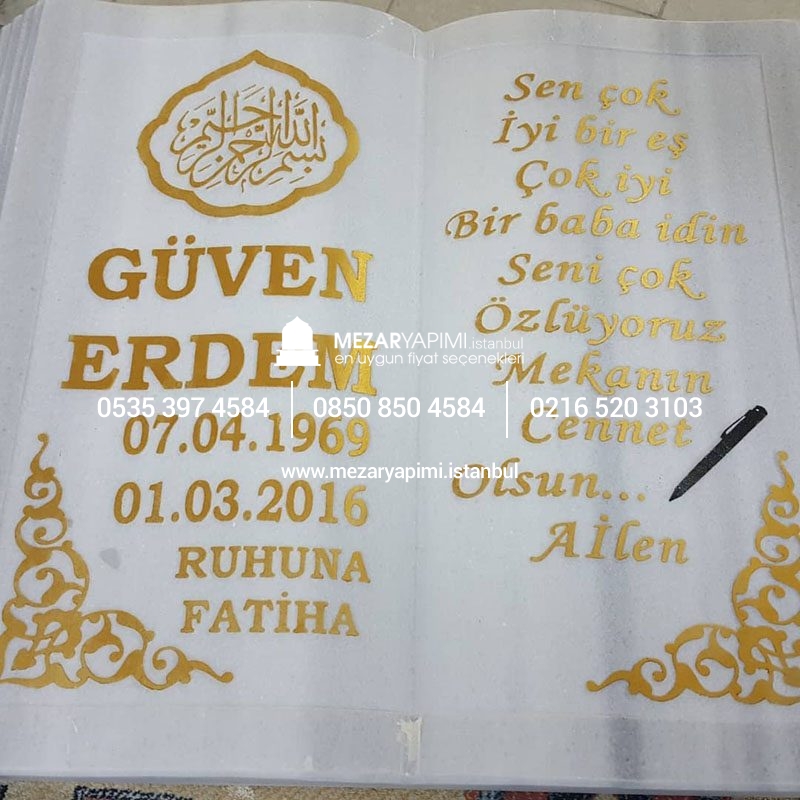 بسم الله الرحمن الرحيم
GÜVEN
ERDEM
07.04.1969
01.03.2016
RUHUNA
FATİHA
Sen çok
İyi bir eş
Çok iyi
Bir baba idin
Seni çok
Özlüyoruz
Mekanın
Cennet
Olsun...
Aİlen
MEZARYAPIMI.istanbul
en uygun fiyat seçenekleri
0535 397 4584 | 0850 850 4584 | 0216 520 3103
www.mezaryapimi.istanbul